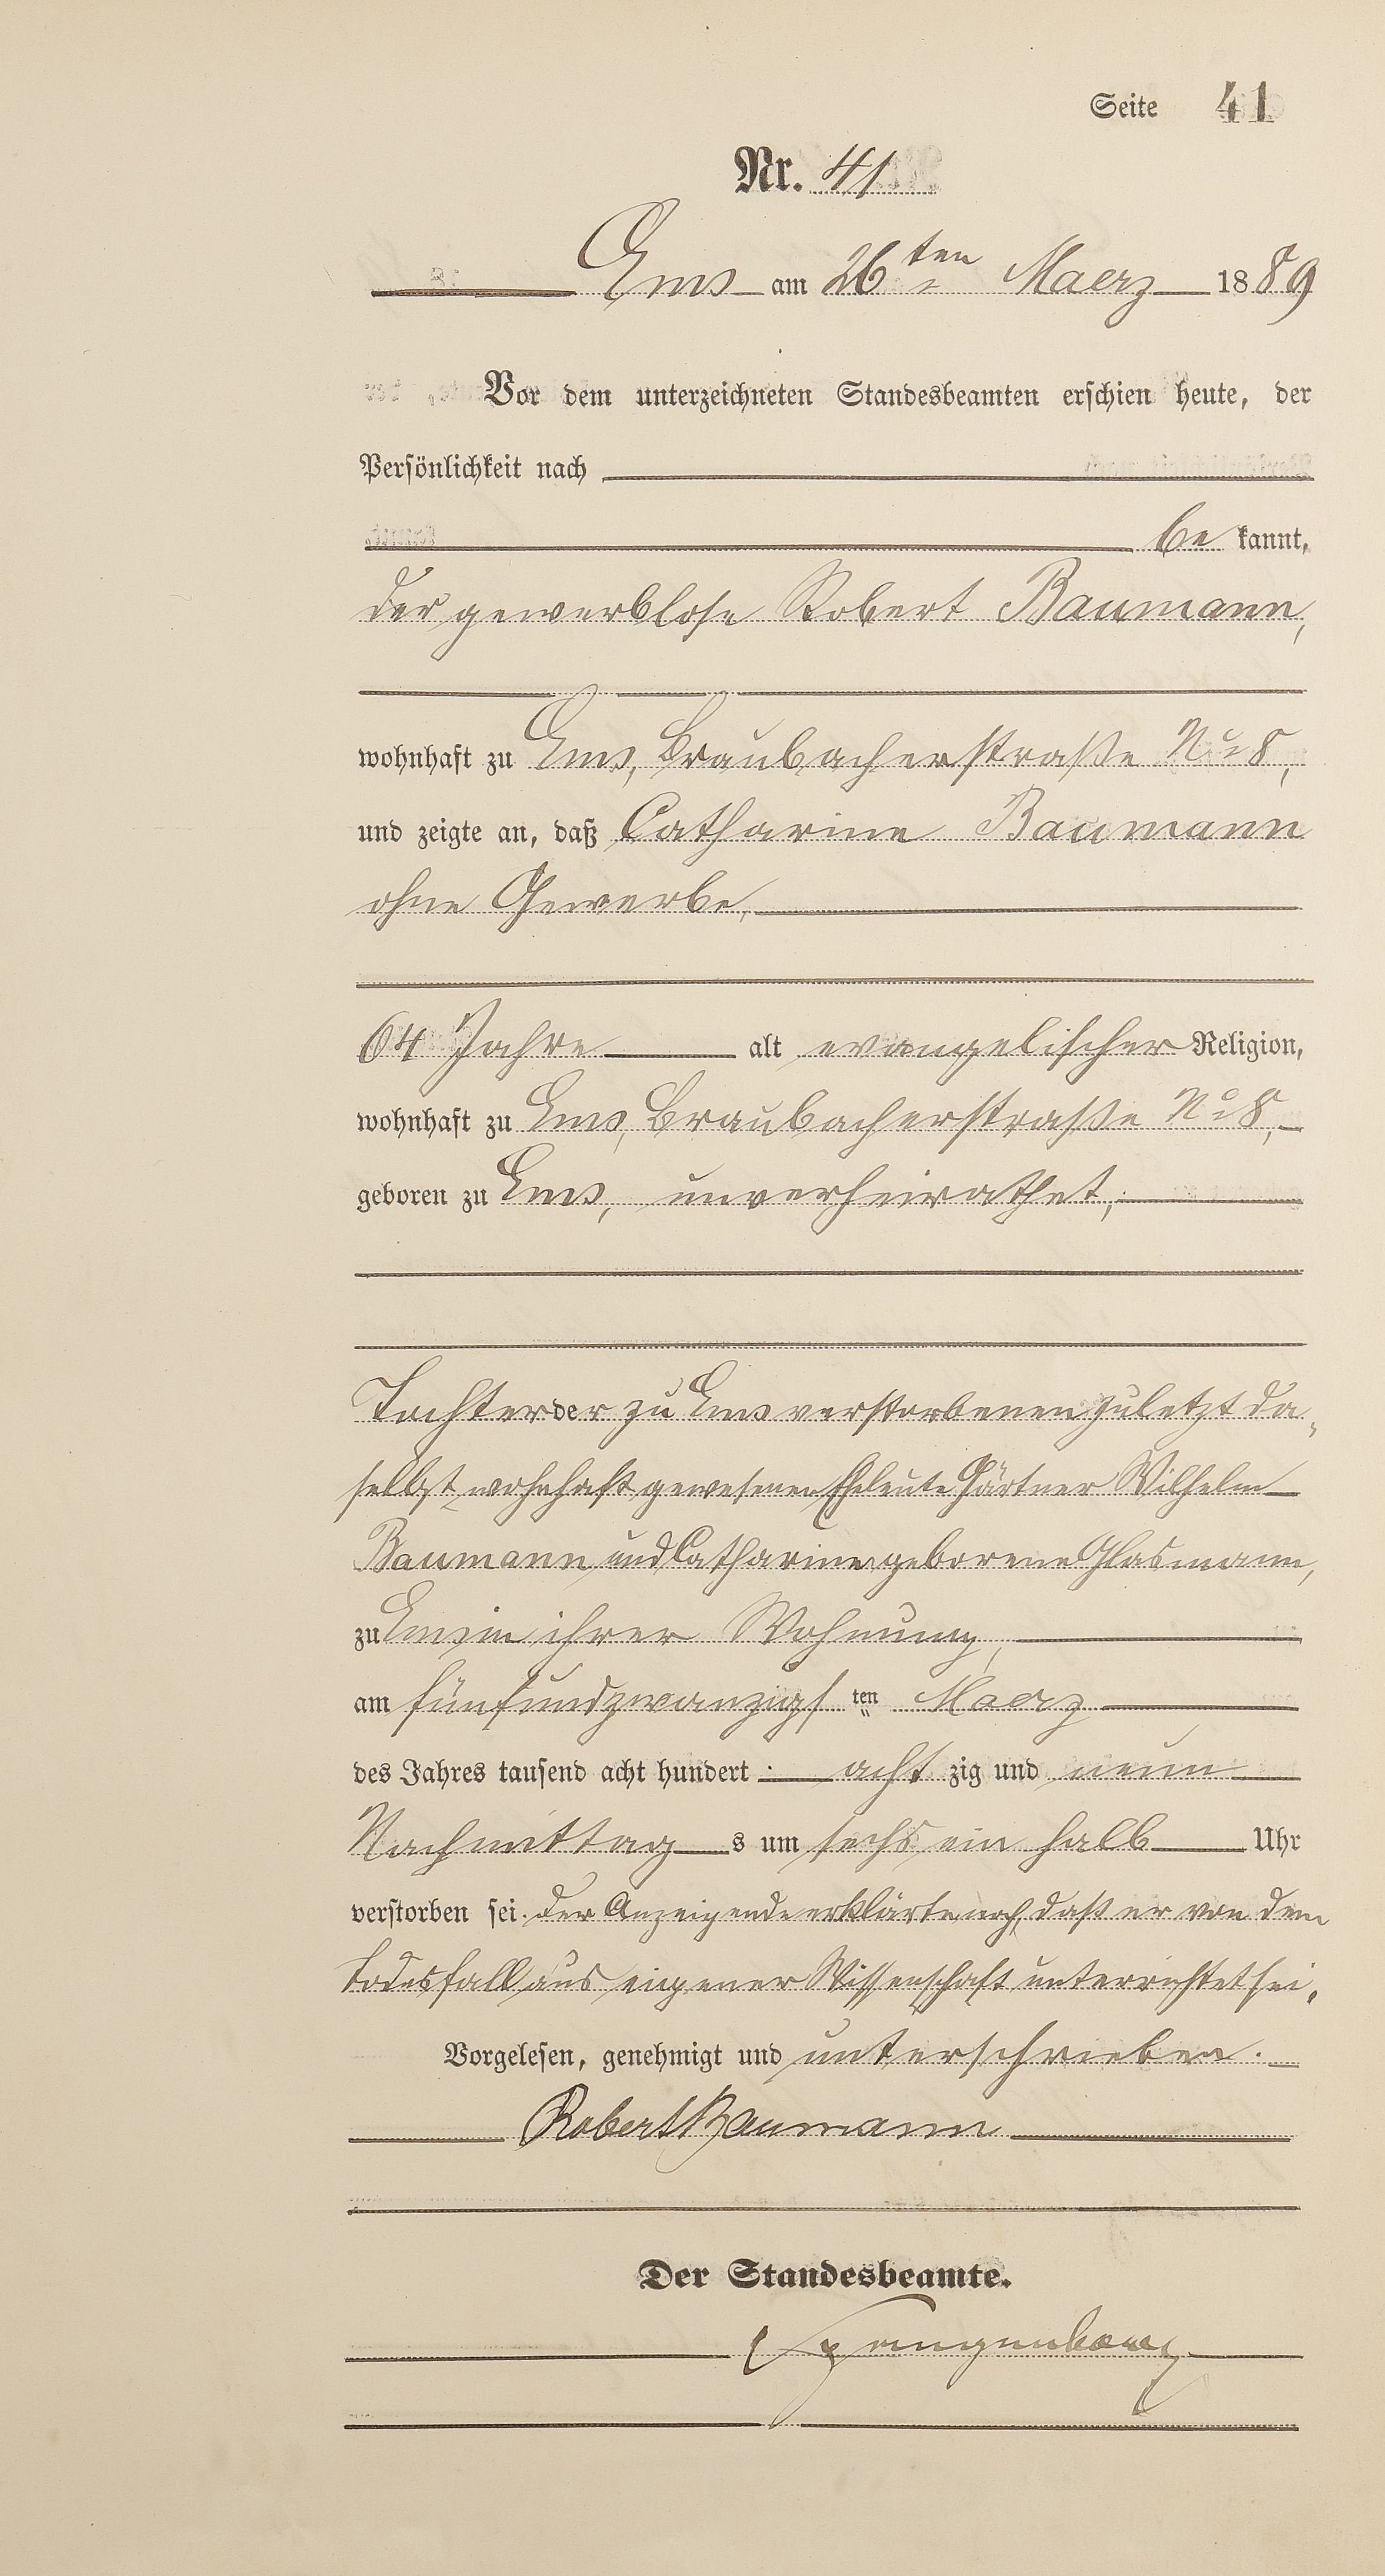 Seite 41
Nr. 41
Ems am 26ten Maerz 1889
Vor dem unterzeichneten Standesbeamten erschien heute, der
Persönlichkeit nach
be kannt,
der gewerblose Robert Baumann,
wohnhaft zu Ems, Braubacherstraße No 8,
und zeigte an, daß Catharine Baumann
ohne Gewerbe,
64 Jahre alt evangelischer Religion,
wohnhaft zu Ems, Braubacherstraße No 8,
geboren zu Ems, unverheirathet,
Tochter der zu Ems verstorbenen zuletzt da-
selbst wohnhaft gewesenen Eheleute Gärtner Wilhelm
Baumann und Catharine geborene Glasmann,
zu Ems in ihrer Wohnung,
am fünfundzwanzigs ten Maerz
des Jahres tausend acht hundert acht zig und neun
Nachmittag s um sechs ein halb Uhr
verstorben sei. Der Anzeigende erklärte noch, daß er von dem
Todesfall aus eigener Wissenschaft unterrichtet sei.
Vorgelesen, genehmigt und unterschrieben.
Robert Baumann
Der Standesbeamte.